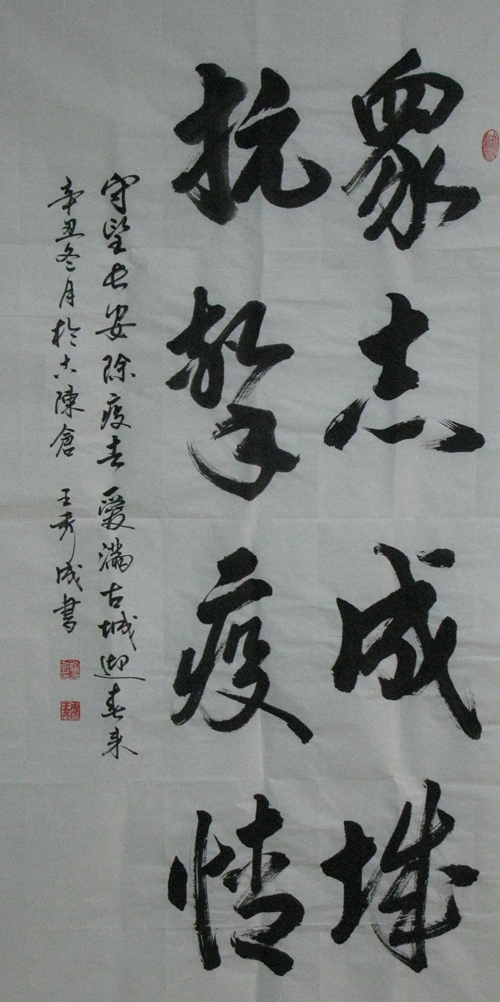 眾志成城
抗擊疫情
守望长安除疫去 愛滿古城迎春来
辛丑冬月於古陳倉 王成書